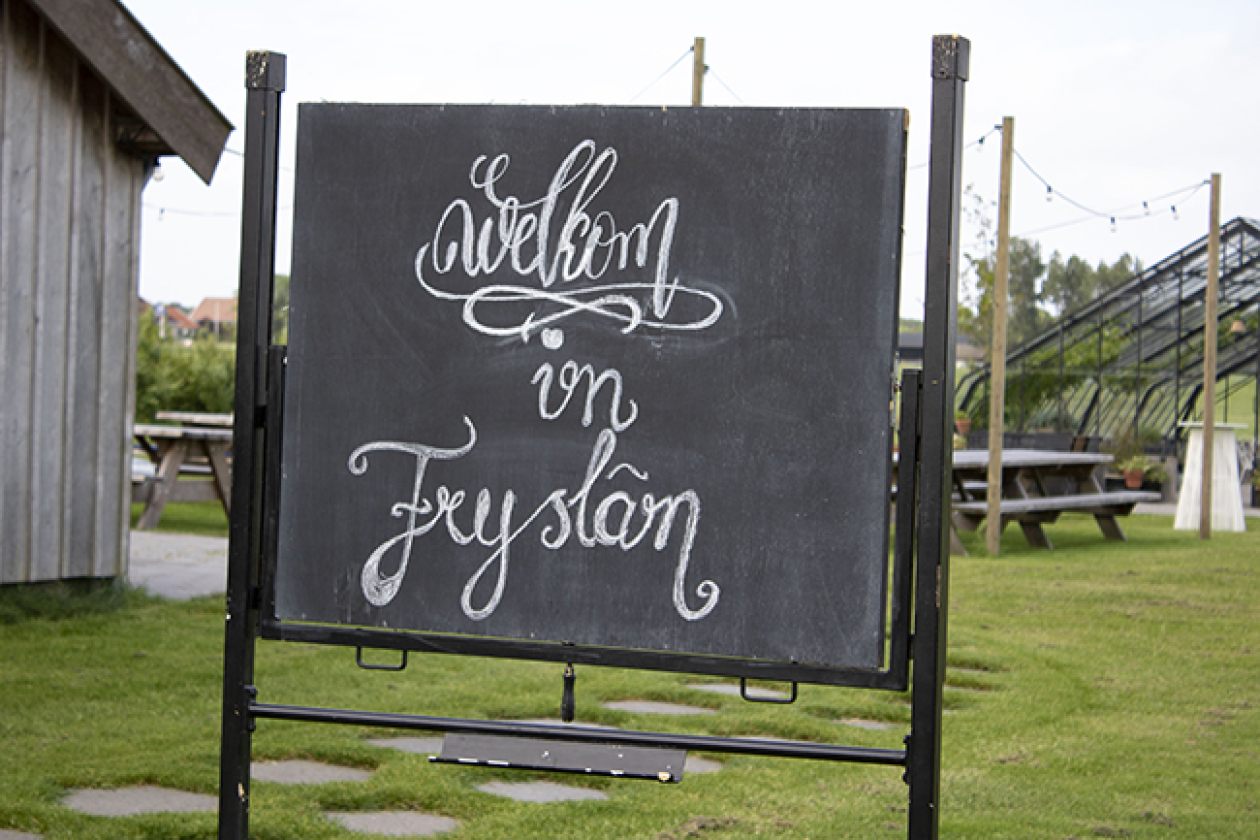 Welkom
in
Fryslân